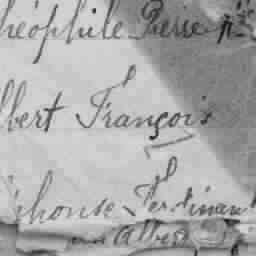 héophile Pierre
lbert François
lphonse Ferdinand
Albert